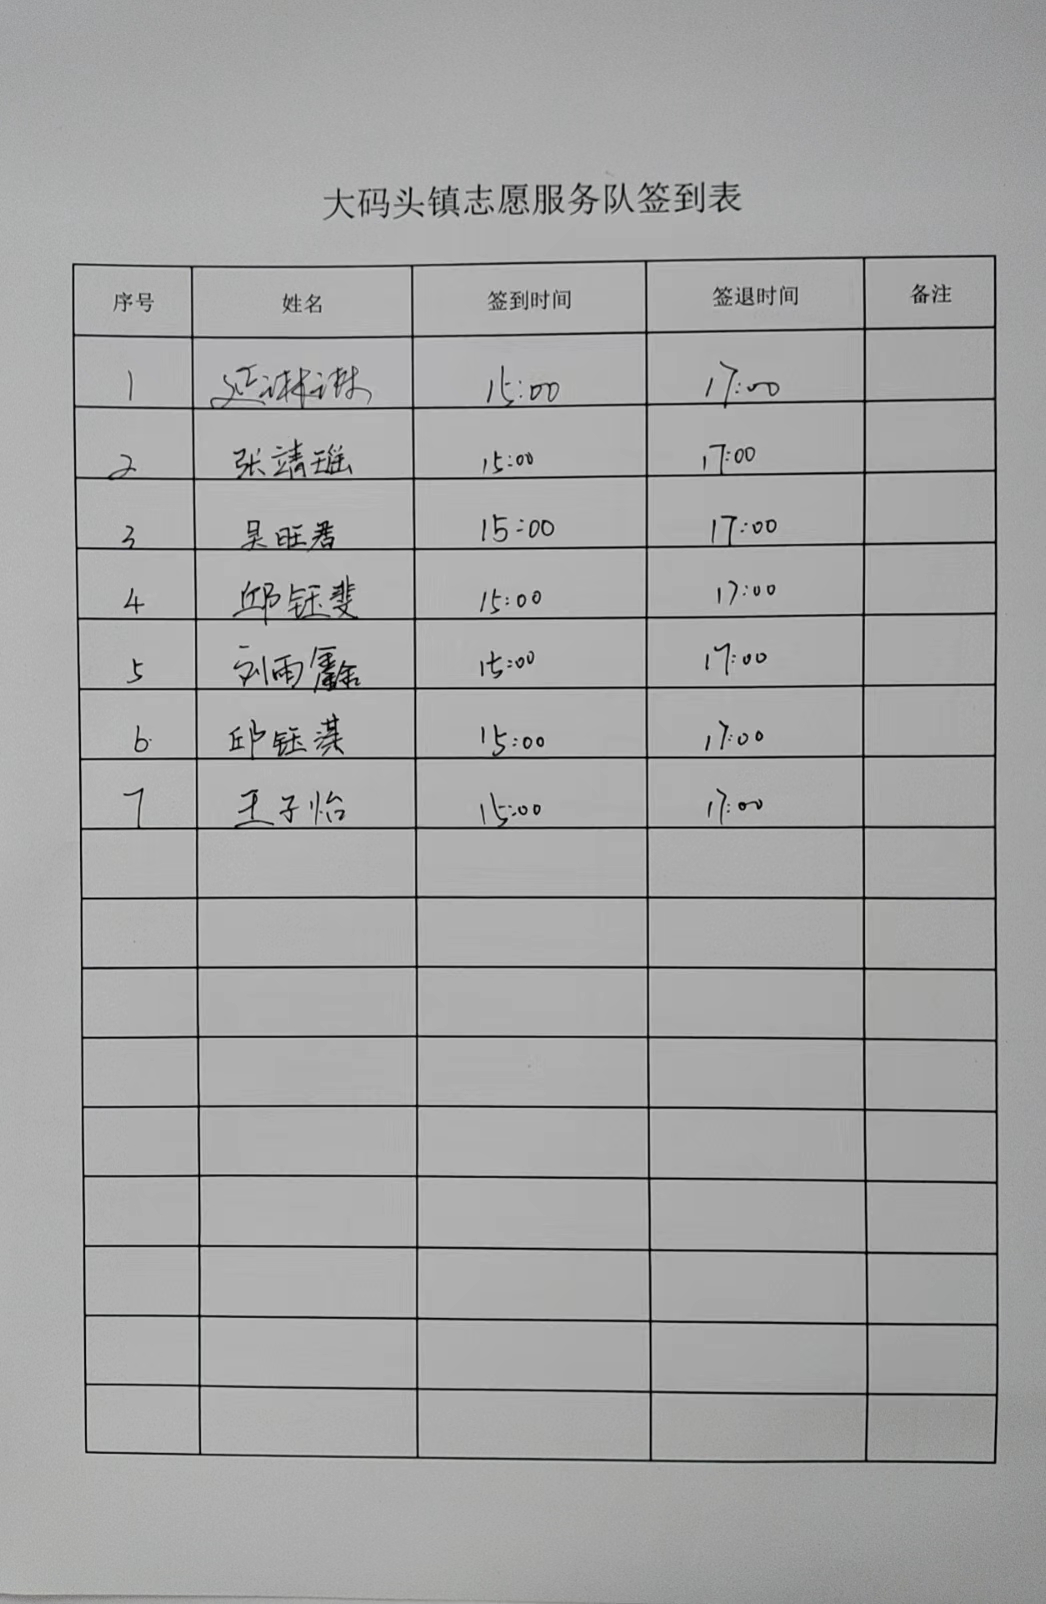 大码头镇志愿服务队签到表
序号 姓名 签到时间 签退时间 备注
1 15:00 17:00
2 张靖瑶 15:00 17:00
3 吴旺君 15:00 17:00
4 邱钰斐 15:00 17:00
5 刘雨 15:00 17:00
6 邱钰淇 15:00 17:00
7 王子怡 15:00 17:00